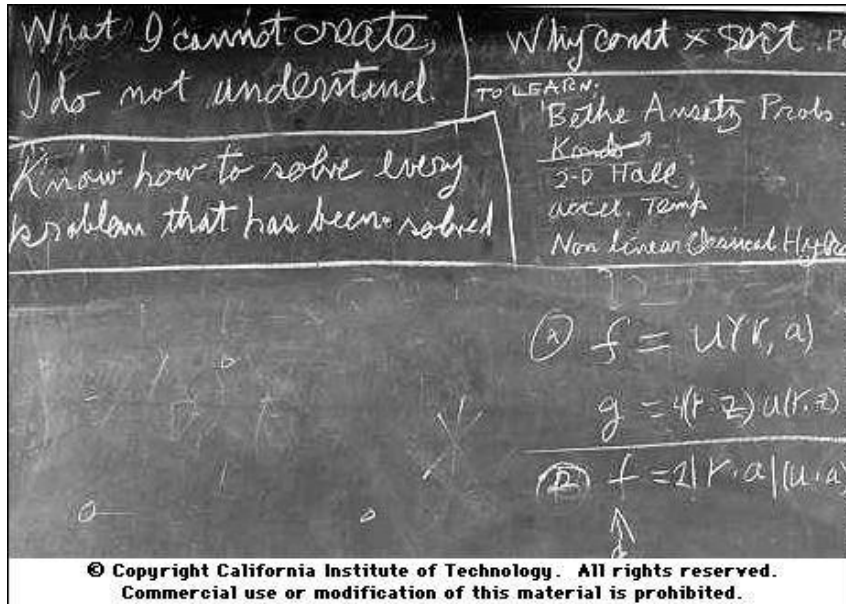 What I cannot create,
I do not understand.
Know how to solve every
problem that has been solved
Why const × sort .
TO LEARN:
Bethe Ansatz Probs.
Kondo
2-D Hall
accel. Temp
Non linear Classical Hydro
f = u(r, a)
g = 4(r·z) u(r, z)
f = 2|r·a|(u·a)
© Copyright California Institute of Technology. All rights reserved.
Commercial use or modification of this material is prohibited.